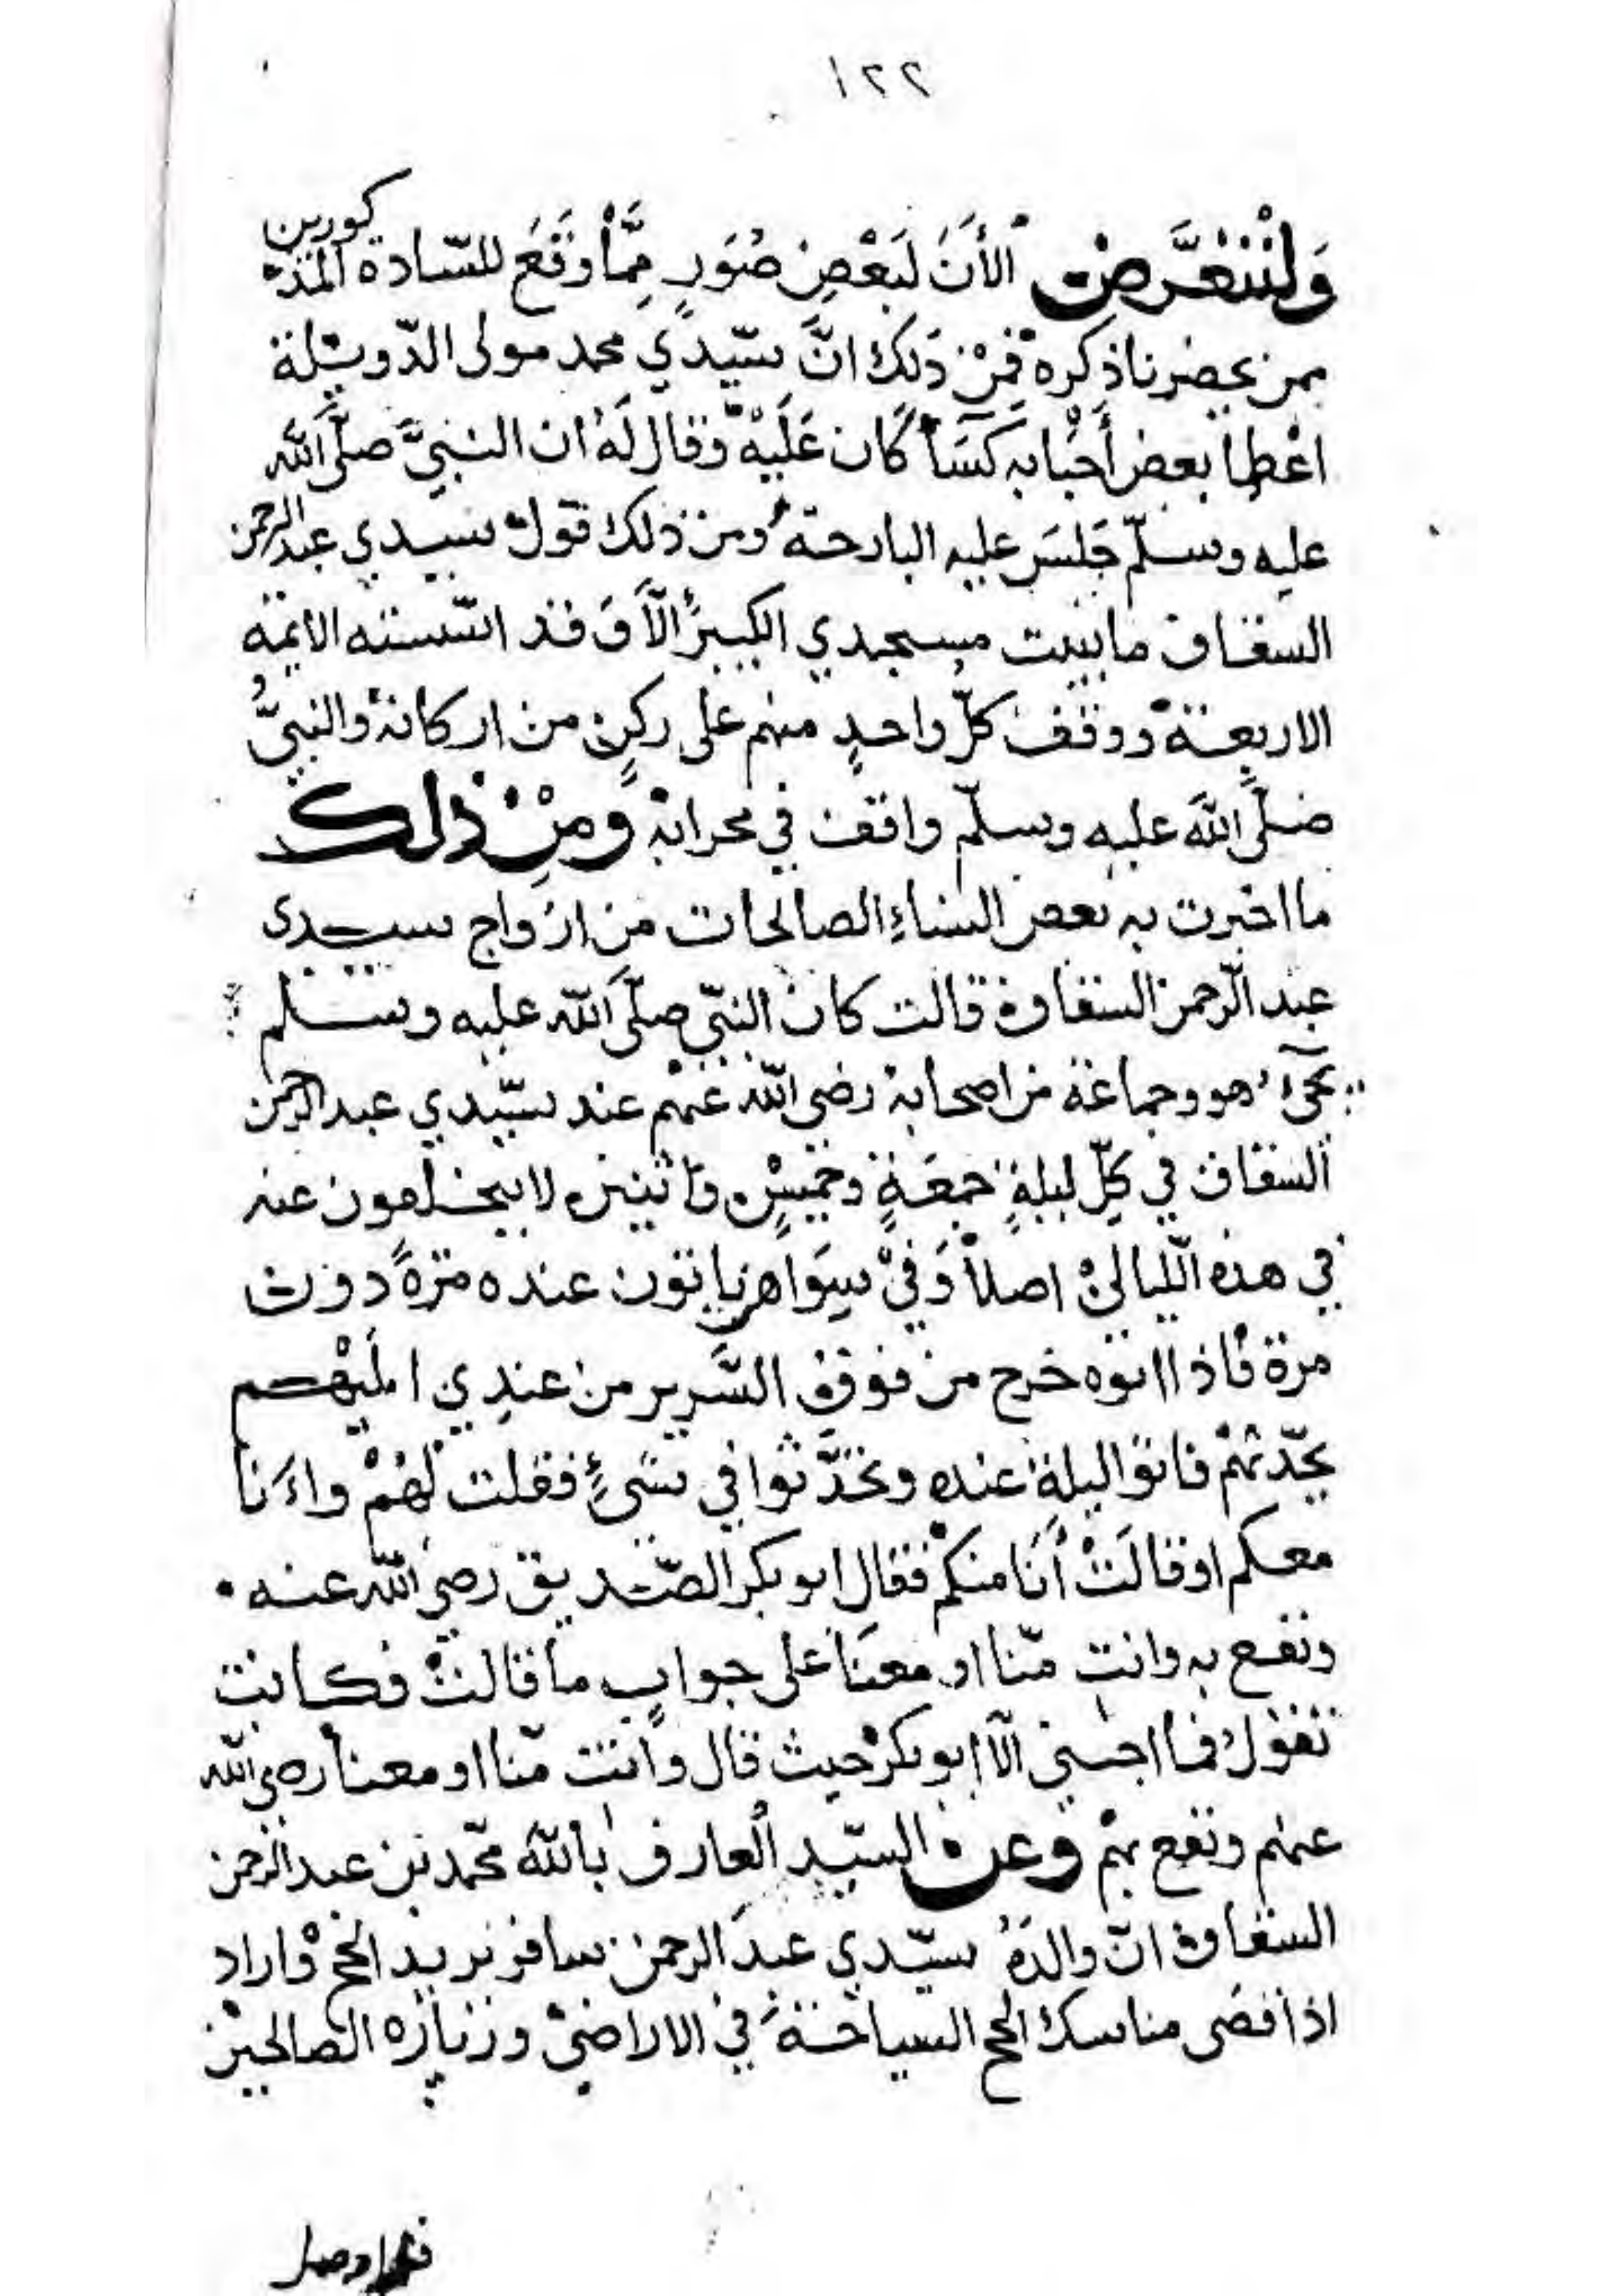 ١٢٢
وَلْنَتَعَرَّضْ الأَنَ لَبَعْضِ صُوَرٍ مِمَّا وَقَعَ للسّادة المذكورين
ممن يحضرنا ذكره فَمِنْ ذَلك انَّ سيّدي محمد مولى الدّويلة
اعْطا بعض أَحْبابه كَسَأً كَان عَلَيْه وقال لَهُ ان النبيَّ صلّى الله
عليه وسلّم جَلسَ عليه البارحة ومن ذلك قول سيدي عبد الرحمن
السقاف ما بنيت مسجدي الكبير الّا وَقد اسّسته الايمة
الاربعة ووقف كلّ واحدٍ منهم على ركنٍ من اركانه والنبيُّ
صلّى الله عليه وسلّم واقف في محرابه وَمِنْ ذلك
ما اخبرت به بعض النساءِ الصالحات من ازواج سيدي
عبد الرّحمن السقاف قالت كان النبّي صلّى الله عليه وسلم
يجيء هو وجماعة من اصحابه رضي الله عنهم عند سيّدي عبد الرحمن
السقاف في كلّ ليلةٍ جمعَةٍ وخميسٍ واثنين لا يتخلفون عنه
في هذه اللّيالي اصلاً وَفيْ سِوَاهن ياتون عنده مرّةً دون
مرة فاذا اتوه خرج من فوق السَّرير من عندِي اليْهم
يحدّثهُمْ فاتوا ليلةٍ عنده وتحدَّثوا في شيءٍ فقلت لَهُمْ واءَنا
معكم او قالَتْ أنَا منكم فقال ابو بكر الصّديق رضي الله عنه
ونفع به وانتِ منّا او معنَا على جوابِ ما قالتْ فكانت
تقول فما اجبني الّا ابو بكر حيث قال وأنت منّا او معنا رضي الله
عنهم ونفع بهم وعن السيّد العارف بالله محّمد بن عبد الرحمن
السقاف انّ والدهُ سيّدي عبدَ الرحمن سافر يريد الحج واراد
اذا قضى مناسك الحج السياحَة في الاراضيْ وزيارة الصالحين
فلما وصل